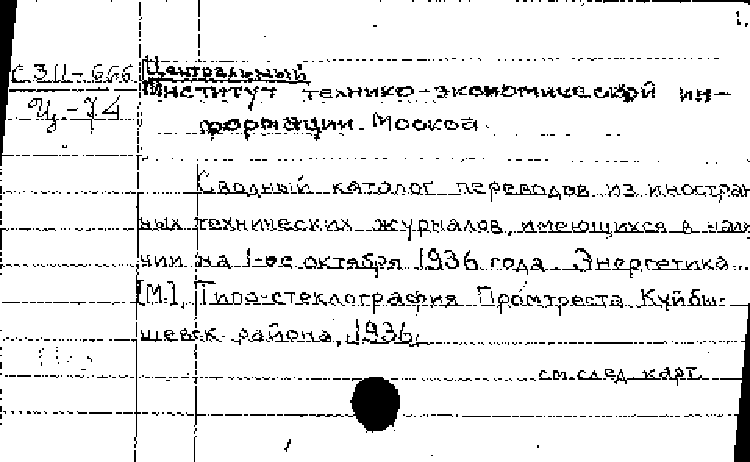 1.
С 311-666 Центральный
Ц-74 Институт технико-экономической ин-
формации. Москва.
Сводный каталог переводов из иностран
ных технических журналов, имеющихся в нали
чии на 1-ое октября 1936 года. Энергетика.
[М.], Типо-стеклография Промтреста Куйбы-
шевск. района, 1936.
см. след. карт.